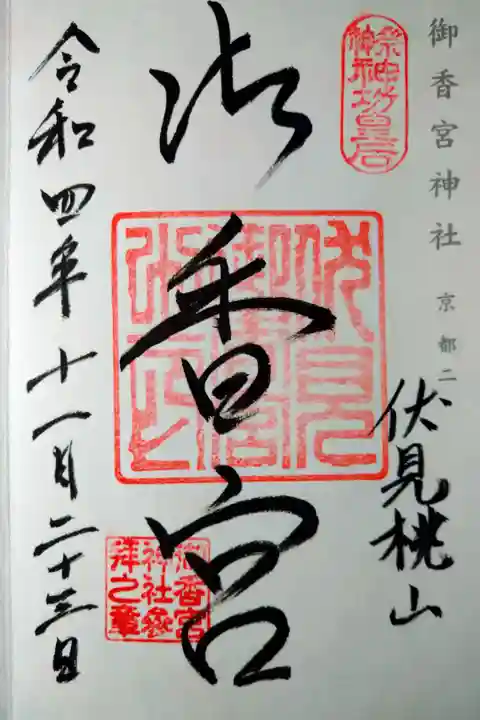 御香宮神社 京都二
祭神神功皇后
伏見桃山
御香宮
御香宮
神社参
拝之章
令和四年十一月二十三日